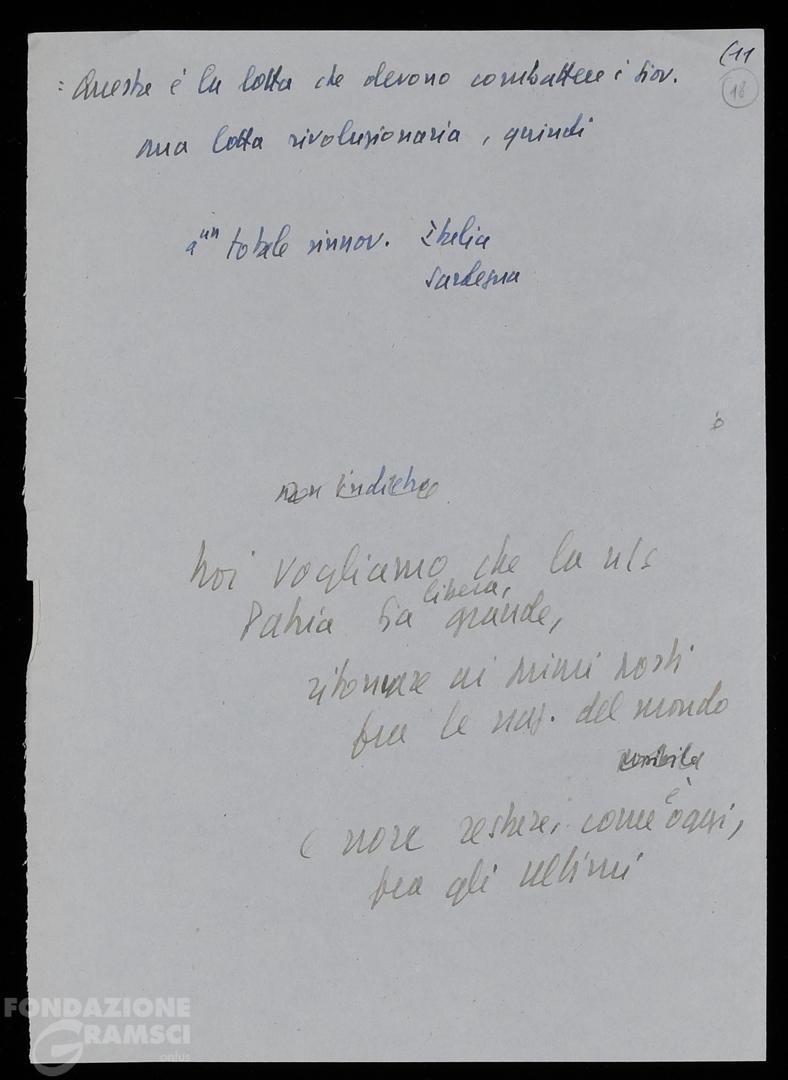 (11
18
= Questa è la lotta che devono combattere i giov.
una lotta rivoluzionaria, quindi
a un totale rinnov. Italia
Sardegna
non indietro
Noi vogliamo che la n/s
Patria sia libera, grande,
ritornare ai primi posti
fra le naz. del mondo
e non restare, come è oggi,
fra gli ultimi
FONDAZIONE
GRAMSCI
onlus